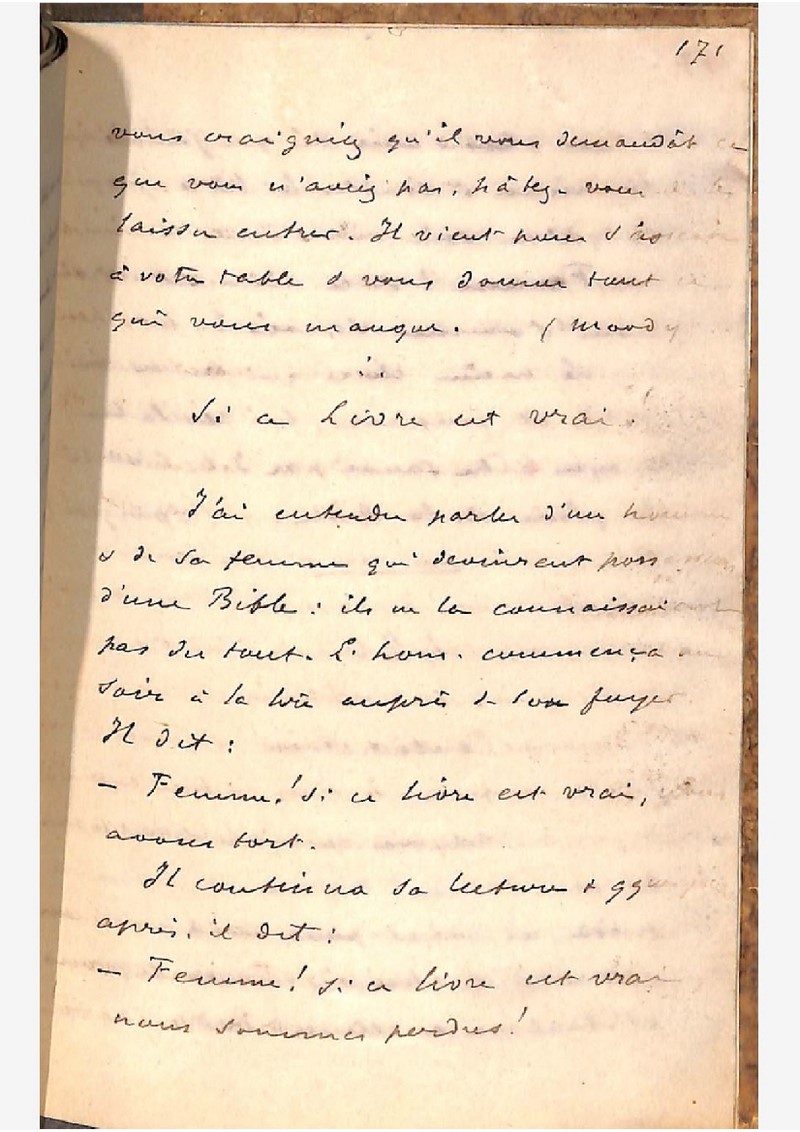 171
vous craigniez qu'il vous demandât ce
que vous n'aviez pas, hâtez-vous de le
laisser entrer. Il vient pour s'asseoir
à votre table & vous donner tout ce
qui vous manque. (Moody
Si ce livre est vrai!
J'ai entendu parler d'un homme
& de sa femme qui devinrent poss
d'une Bible : ils ne la connaissaient
pas du tout. L'hom. commença un
soir à la lire auprès de son foyer
Il dit :
– Femme! si ce livre est vrai, nous
avons tort.
Il continua sa lecture & qq
après, il dit :
– Femme! si ce livre est vrai
nous sommes perdus!